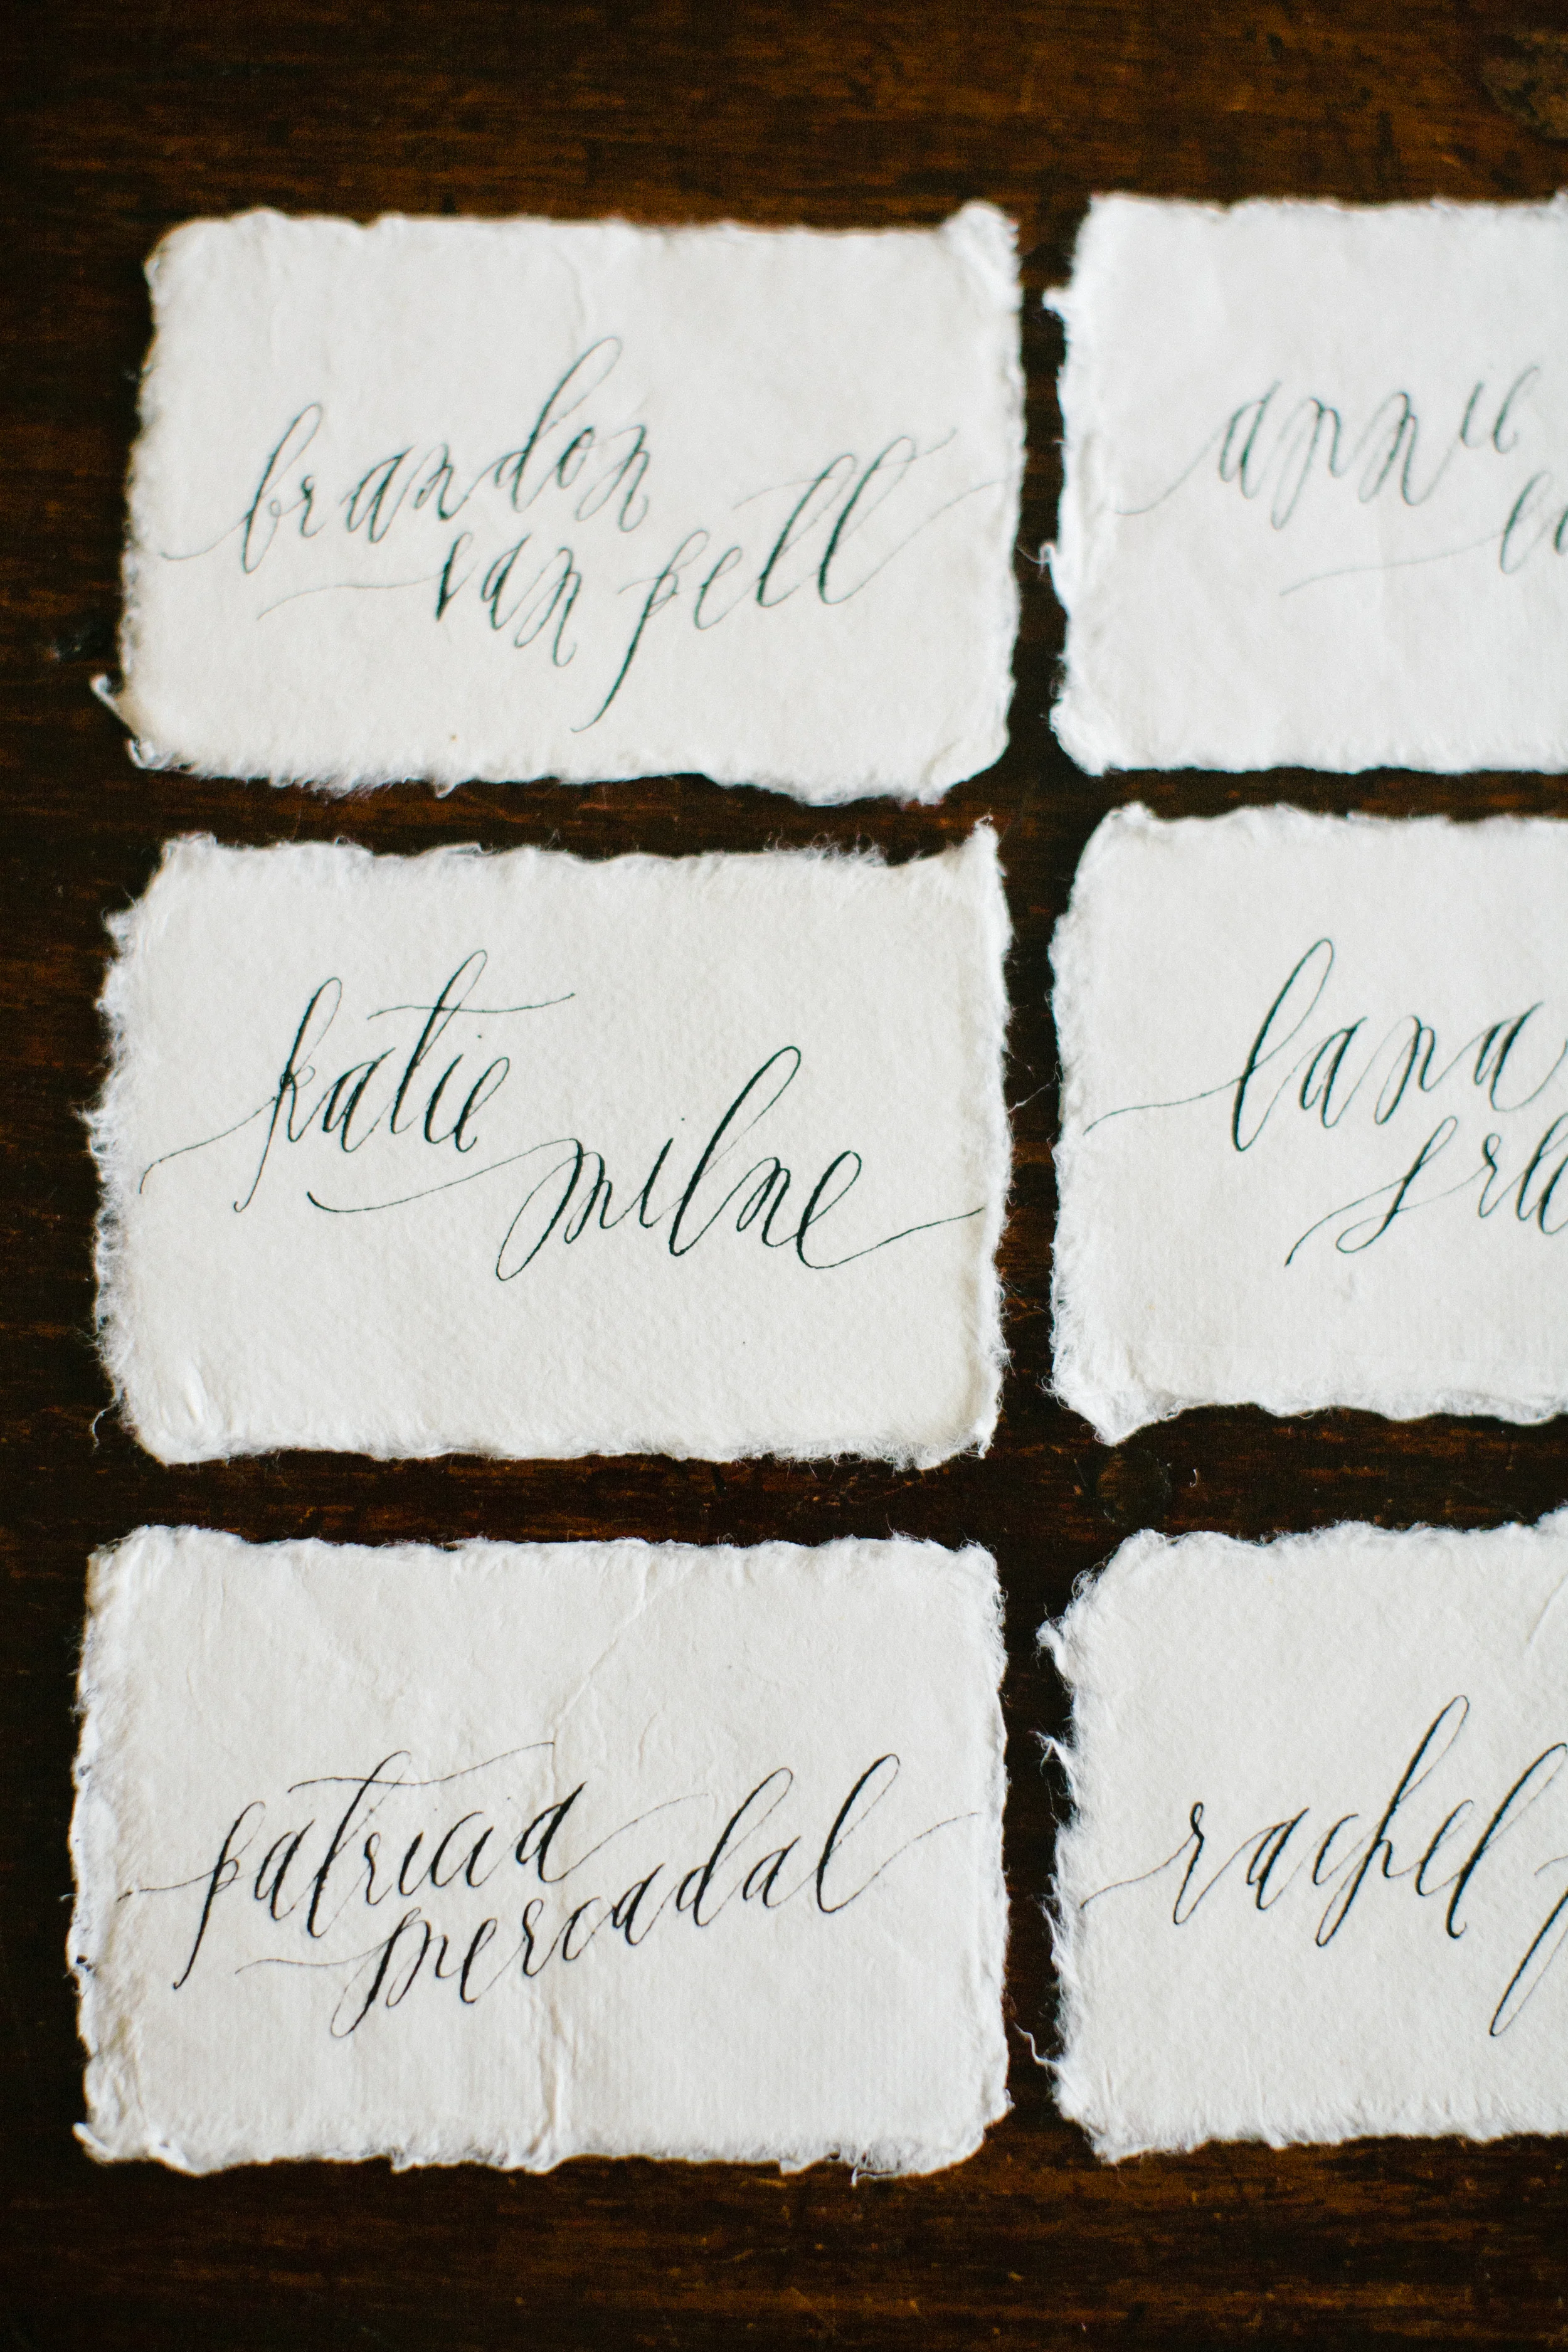 brandon
van pelt
annie
katie
milne
lana
patricia
mercadal
rachel